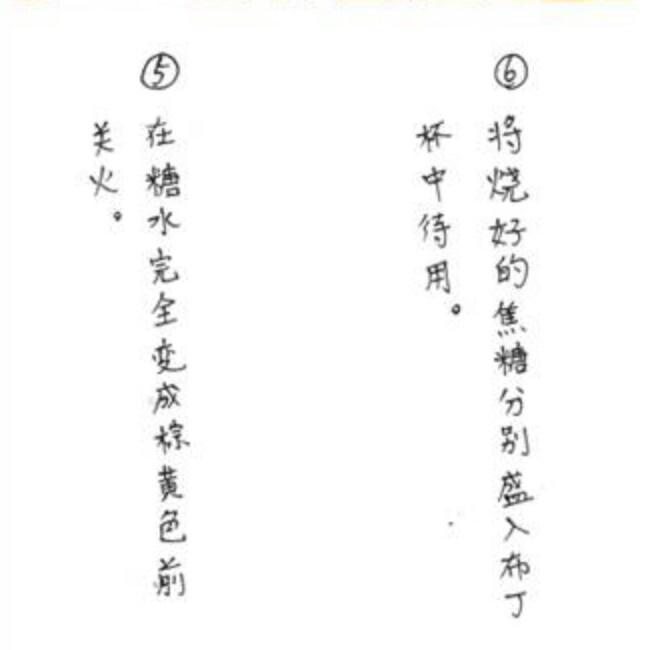 ⑤
在糖水完全变成棕黄色前
关火。
⑥
将烧好的焦糖分别盛入布丁
杯中待用。